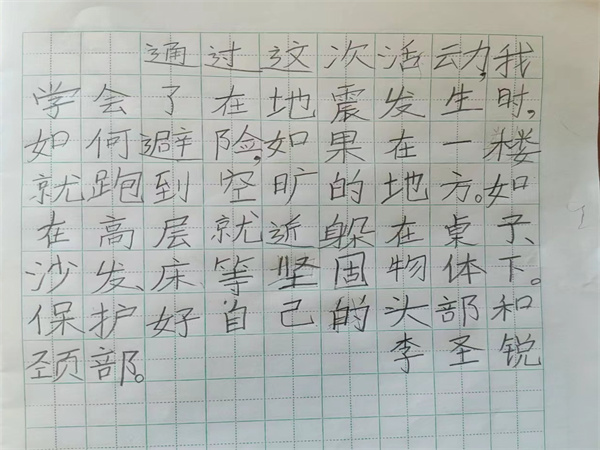 通过这次活动,我
学会了在地震发生时,
如何避险,如果在一楼
就跑到空旷的地方。如
在高层就近躲在桌子、
沙发、床等坚固物体下。
保护好自己的头部和
颈部。
李圣锐